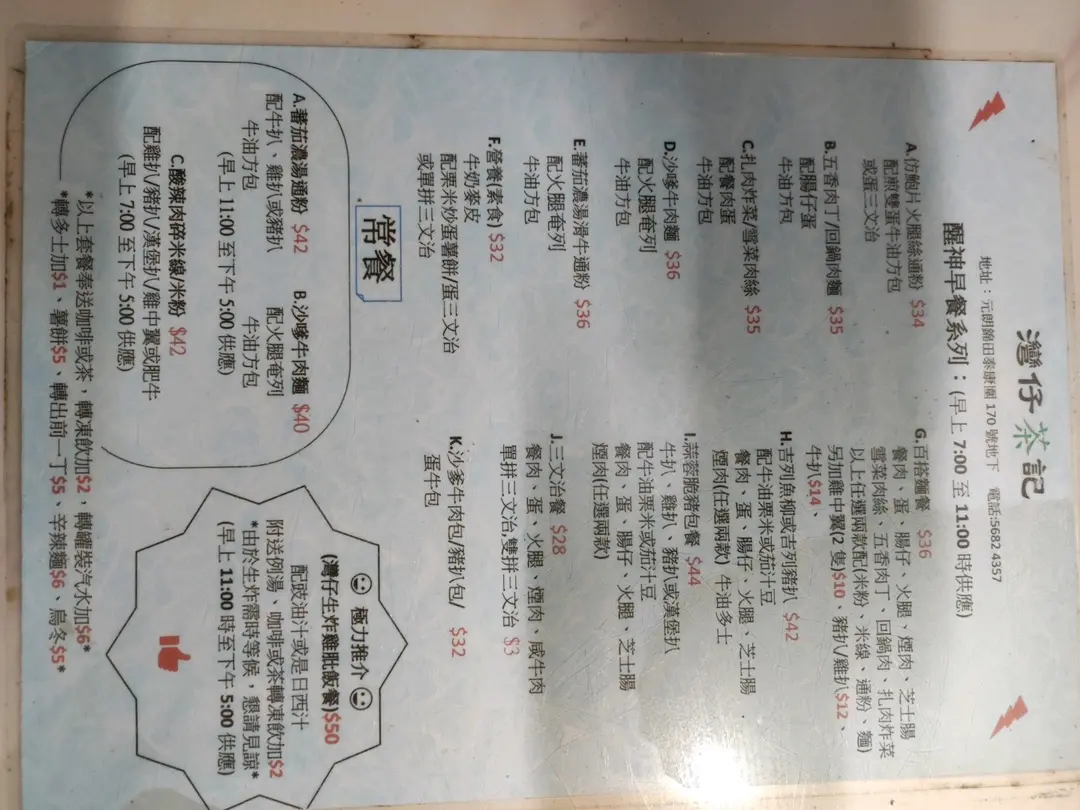 灣仔茶記
地址：元朗錦田泰康圍 170 號地下 電話:5682 4357
醒神早餐系列：(早上 7:00 至 11:00 時供應)
A.仿鮑片火腿絲通粉 $34
配煎雙蛋牛油方包
或蛋三文治
B.五香肉丁/回鍋肉麵 $35
配腸仔蛋
牛油方包
C.扎肉炸菜/雪菜肉絲 $35
配餐肉蛋
牛油方包
D.沙嗲牛肉麵 $36
配火腿奄列
牛油方包
E.蕃茄濃湯滑牛通粉 $36
配火腿奄列
牛油方包
F.營餐(素食) $32
牛奶麥皮
配栗米炒蛋薯餅/蛋三文治
或單拼三文治
G.百搭麵餐 $36
餐肉、蛋、腸仔、火腿、煙肉、芝士腸
雪菜肉絲、五香肉丁、回鍋肉、扎肉炸菜
以上任選兩款配(米粉、米線、通粉、麵)
另加雞中翼(2 隻)$10、豬扒/雞扒$12、
牛扒$14、
H.吉列魚柳或吉列豬扒 $42
配牛油栗米或茄汁豆
餐肉、蛋、腸仔、火腿、芝士腸
煙肉(任選兩款) 牛油多士
I.蒜蓉脆豬包餐 $44
牛扒、雞扒、豬扒或漢堡扒
配牛油栗米或茄汁豆
餐肉、蛋、腸仔、火腿、芝士腸
煙肉(任選兩款)
J.三文治餐 $28
餐肉、蛋、火腿、煙肉、咸牛肉
單拼三文治,雙拼三文治 $3
K.沙爹牛肉包/豬扒包/ $32
蛋牛包
常餐
A.蕃茄濃湯通粉 $42
配牛扒、雞扒或豬扒
牛油方包
(早上 11:00 至下午 5:00 供應)
B.沙嗲牛肉麵 $40
配火腿奄列
牛油方包
C.酸辣肉碎米線/米粉 $42
配雞扒/豬扒/漢堡扒/雞中翼或肥牛
(早上 7:00 至下午 5:00 供應)
*以上套餐奉送咖啡或茶，轉凍飲加$2，轉罐裝汽水加$6*
*轉多士加$1、薯餅$5、轉出前一丁$5、辛辣麵$6、烏冬$5*
極力推介
(灣仔生炸雞肶飯餐)$50
配豉油汁或是日西汁
附送例湯、咖啡或茶轉凍飲加$2
*由於生炸需時等候，懇請見諒*
(早上 11:00 時至下午 5:00 供應)